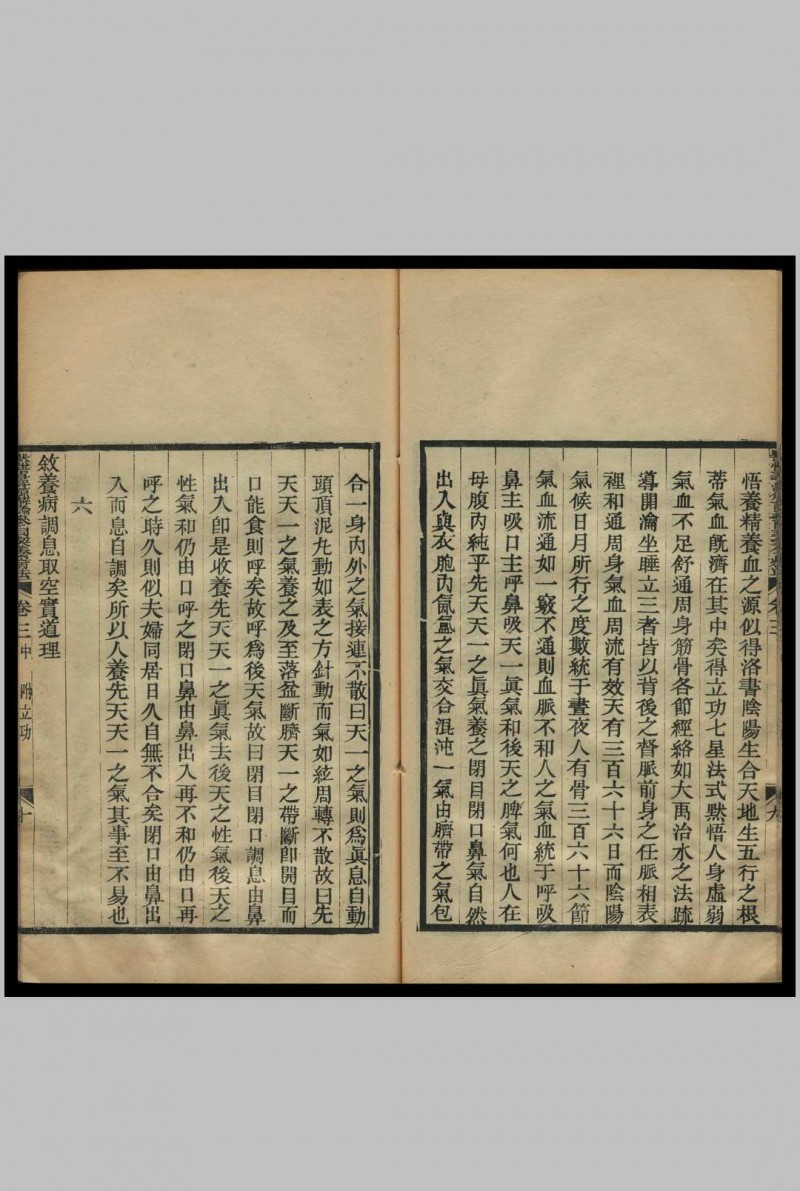 悟養精養血之源似得洛書陰陽生合天地生五行之根
蒂氣血旣濟在其中矣得立功七星法式默悟人身虛弱
氣血不足舒通周身筋骨各節經絡如大禹治水之法疏
導開瀹坐睡立三者皆以背後之督脈前身之任脈相表
裡和通周身氣血周流有效天有三百六十六日而陰陽
氣候日月所行之度數統于晝夜人有骨三百六十六節
氣血流通如一竅不通則血脈不和人之氣血統于呼吸
鼻主吸口主呼鼻吸天一眞氣和後天之脾氣何也人在
母腹內純乎先天天一之眞氣養之閉目閉口鼻氣自然
出入與衣胞內氤氳之氣交合混沌一氣由臍帶之氣包
合一身內外之氣接連不散曰天一之氣則爲眞息自動
頭頂泥丸動如表之方針動而氣如絃周轉不散故曰先
天天一之氣養之及至落盆斷臍天一之帶斷卽開目而
口能食則呼矣故呼爲後天氣故曰閉目閉口調息由鼻
出入卽是收養先天天一之眞氣去後天之性氣後天之
性氣和仍由口呼之閉口鼻由鼻出入再不和仍由口再
呼之時久則似夫婦同居日久自無不合矣閉口由鼻出
入而息自調矣所以人養先天天一之氣其事至不易也
六
敘養病調息取空實道理
卷三中 附立功 十